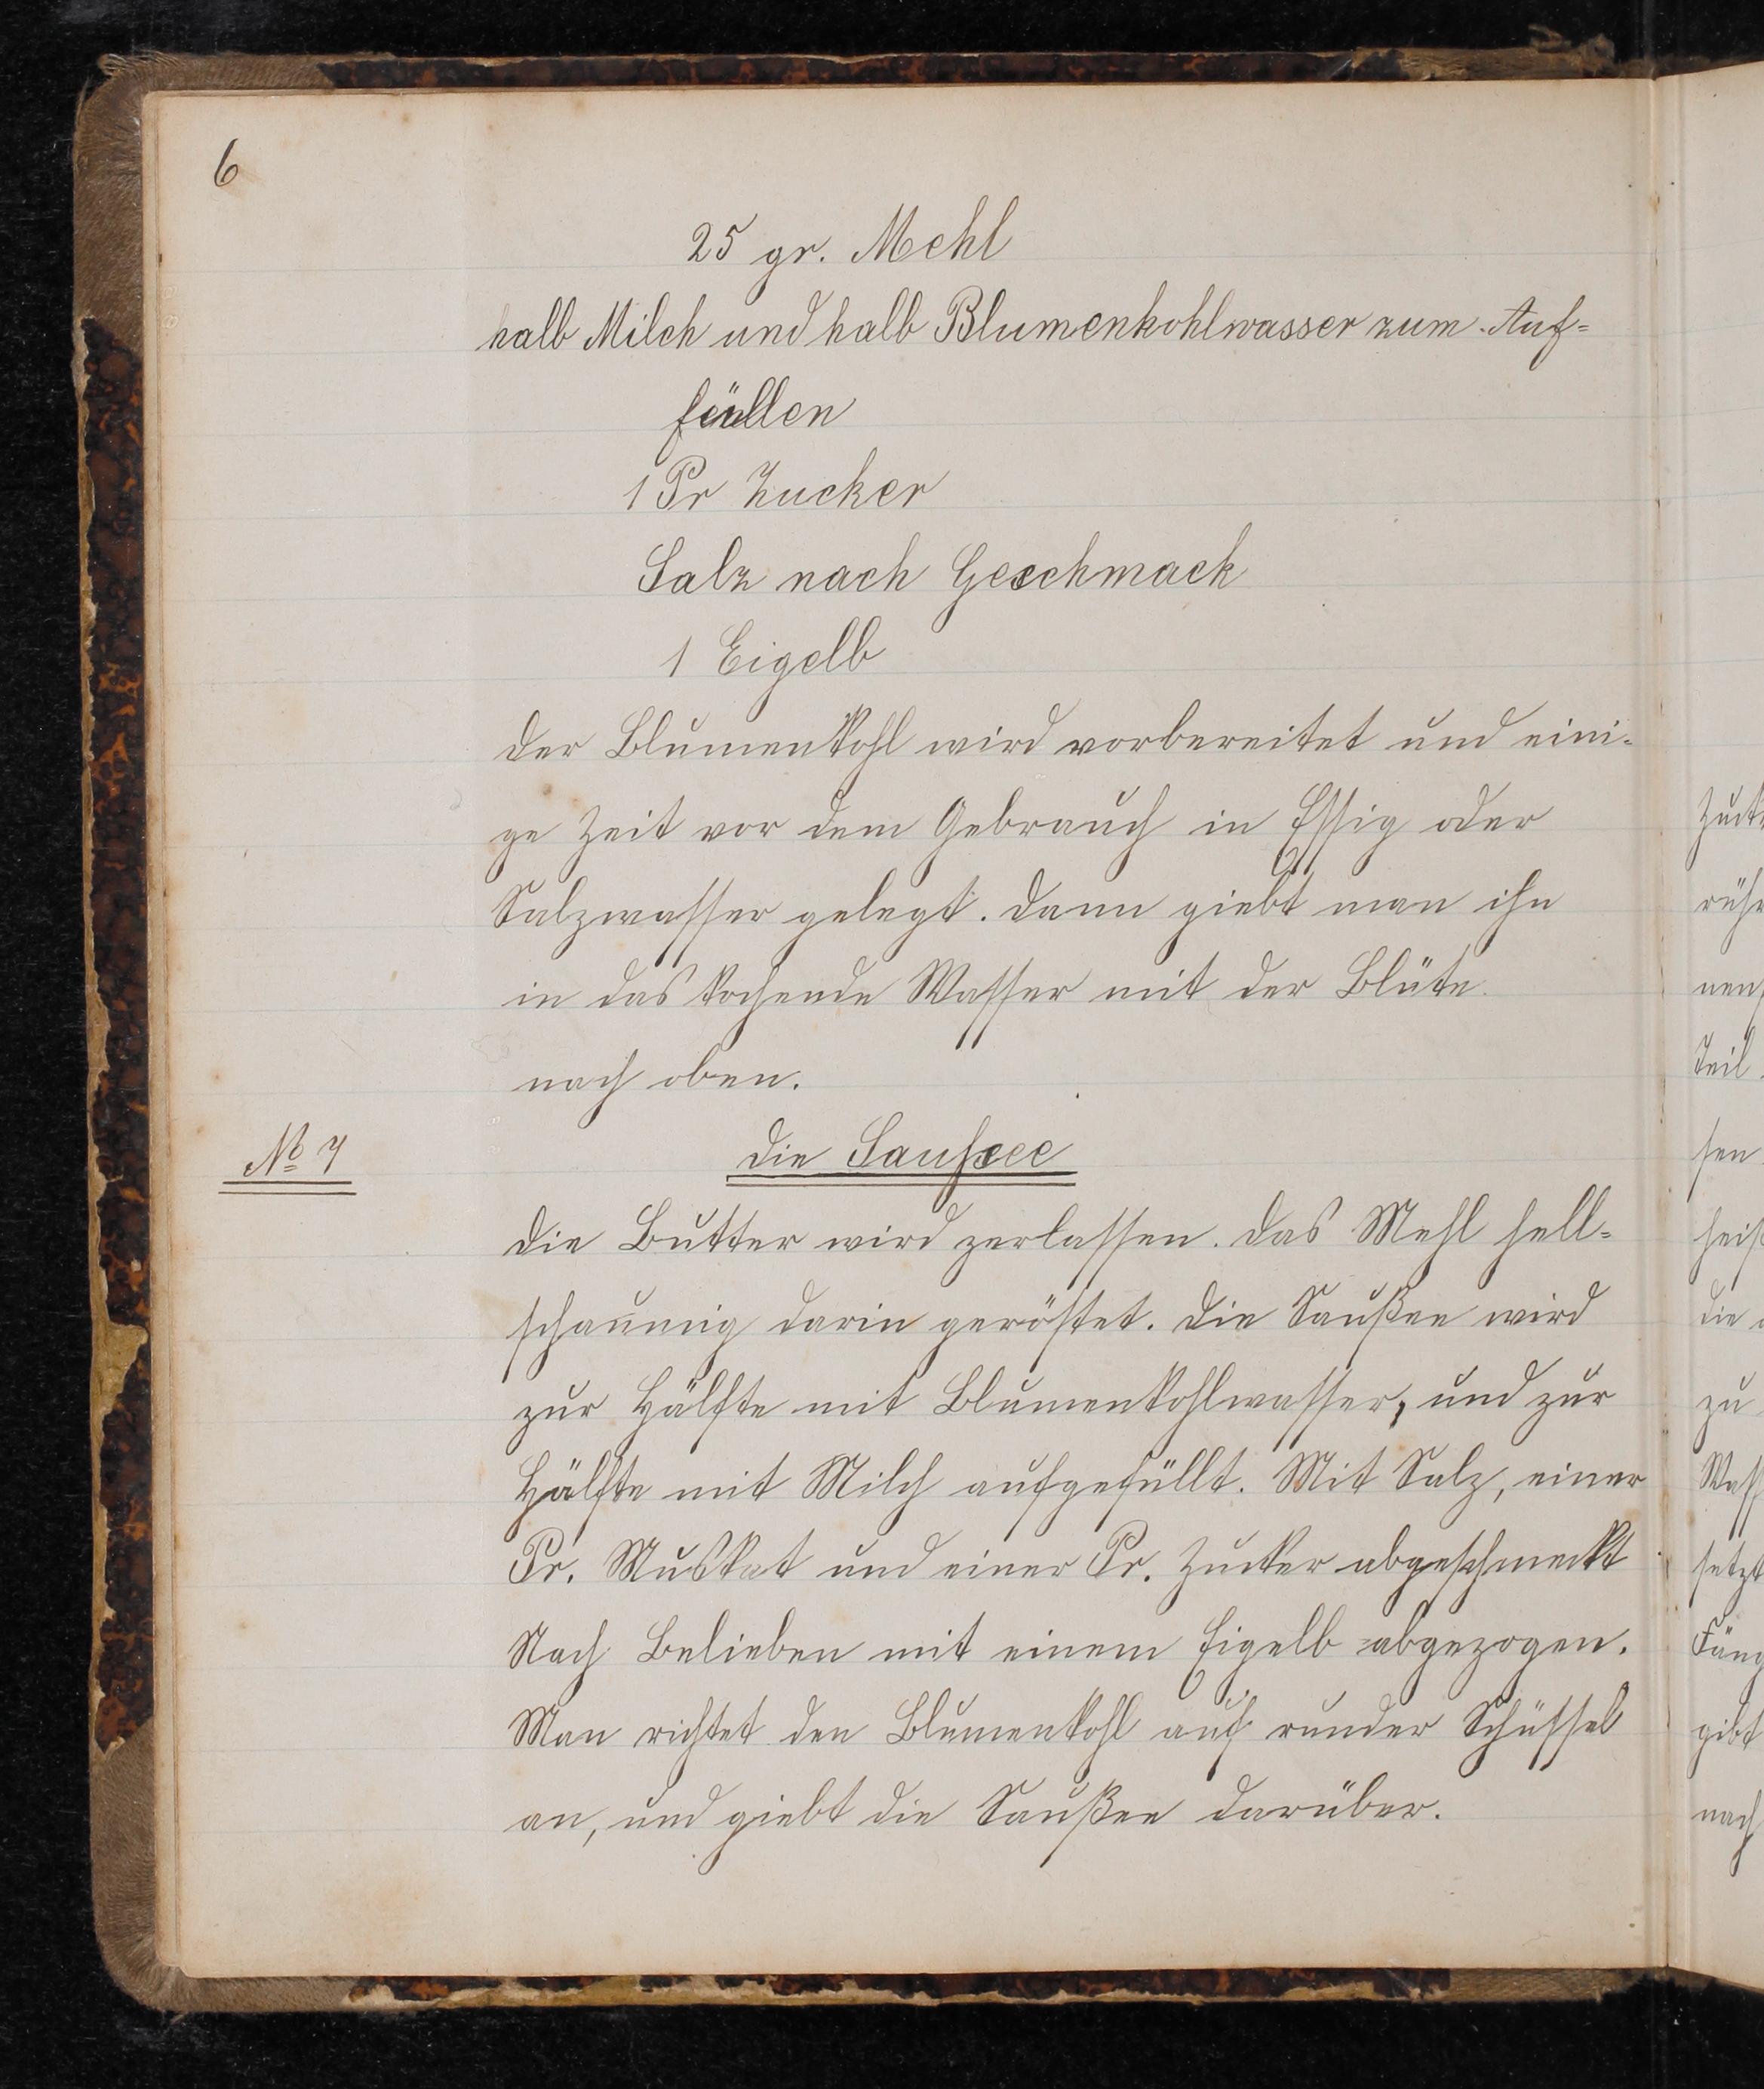 6
25 gr. Mehl
halb Milch und halb Blumenkohlwasser zum Auf-
füllen
1 Pr Zucker
Salz nach Geschmack
1 Eigelb
der Blumenkohl wird vorbereitet und eini-
ge Zeit vor dem Gebrauch in Essig oder
Salzwasser gelegt. dann giebt man ihn
in das kochende Wasser mit der Blüte
nach oben.
No 7
die Saußee
die Butter wird zerlassen. das Mehl hell-
schaumig darin geröstet. die Saußee wird
zur Hälfte mit Blumenkohlwasser, und zur
Hälfte mit Milch aufgefüllt. Mit Salz, einer
Pr. Muskat und einer Pr. Zucker abgeschmeckt
Nach Belieben mit einem Eigelb abgezogen.
Man richtet den Blumenkohl auf runder Schüssel
an, und giebt die Saußee darüber.
rühr
nen
Teil
sen
heiß
die
zu
Wass
setzt
gibt
nach